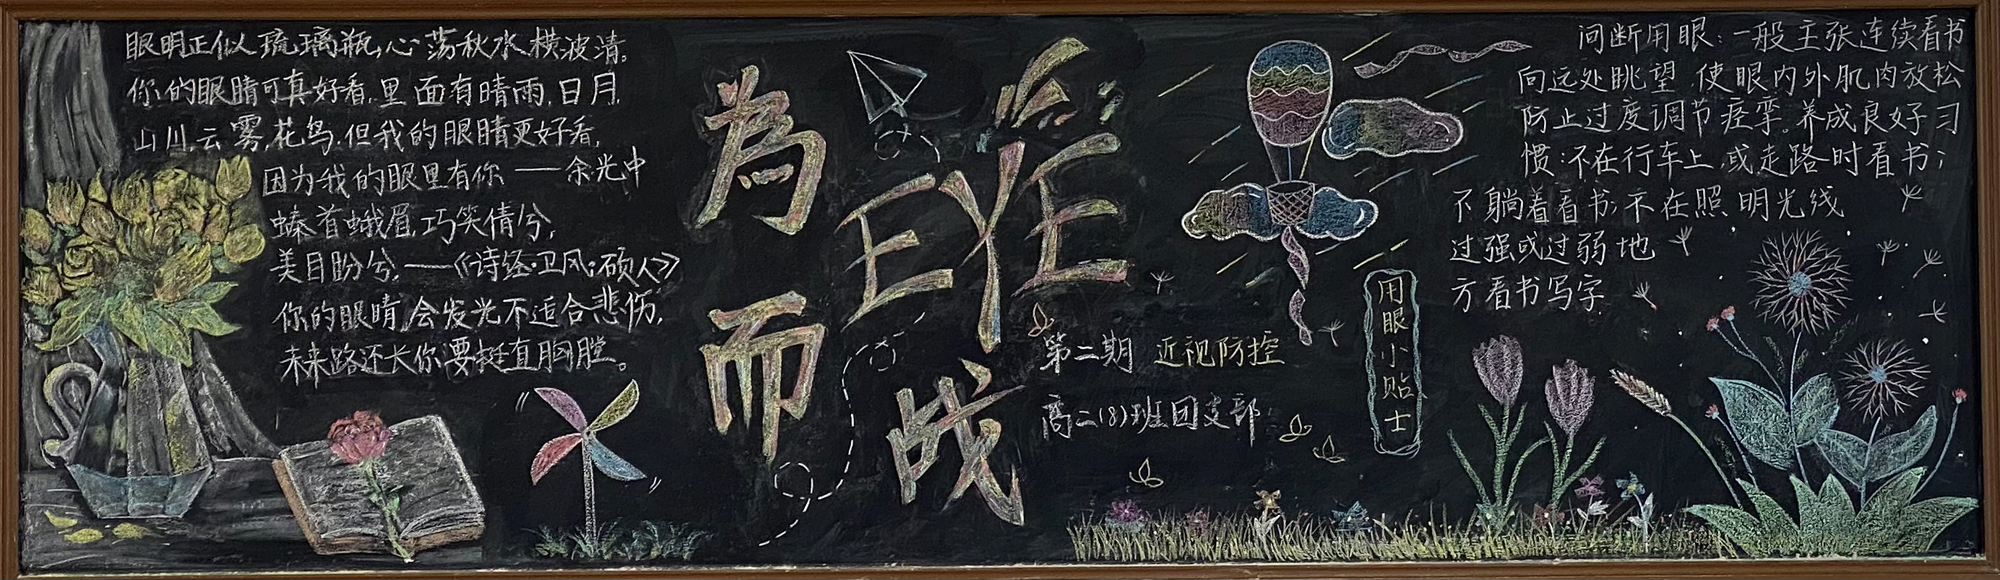 眼明正似琉璃瓶,心荡秋水横波清。
你的眼睛可真好看,里面有晴雨,日月,
山川,云雾,花鸟,但我的眼睛更好看,
因为我的眼里有你 —— 余光中
螓首蛾眉,巧笑倩兮,
美目盼兮,——《诗经·卫风·硕人》
你的眼睛,会发光不适合悲伤,
未来路还长你要挺直胸膛。
為EYE
而战
第二期 近视防控
高二(8)班团支部
用眼小贴士
间断用眼:一般主张连续看书
向远处眺望,使眼内外肌肉放松
防止过度调节痉挛。养成良好习
惯:不在行车上,或走路时看书;
不躺着看书;不在照明光线
过强或过弱地
方看书写字